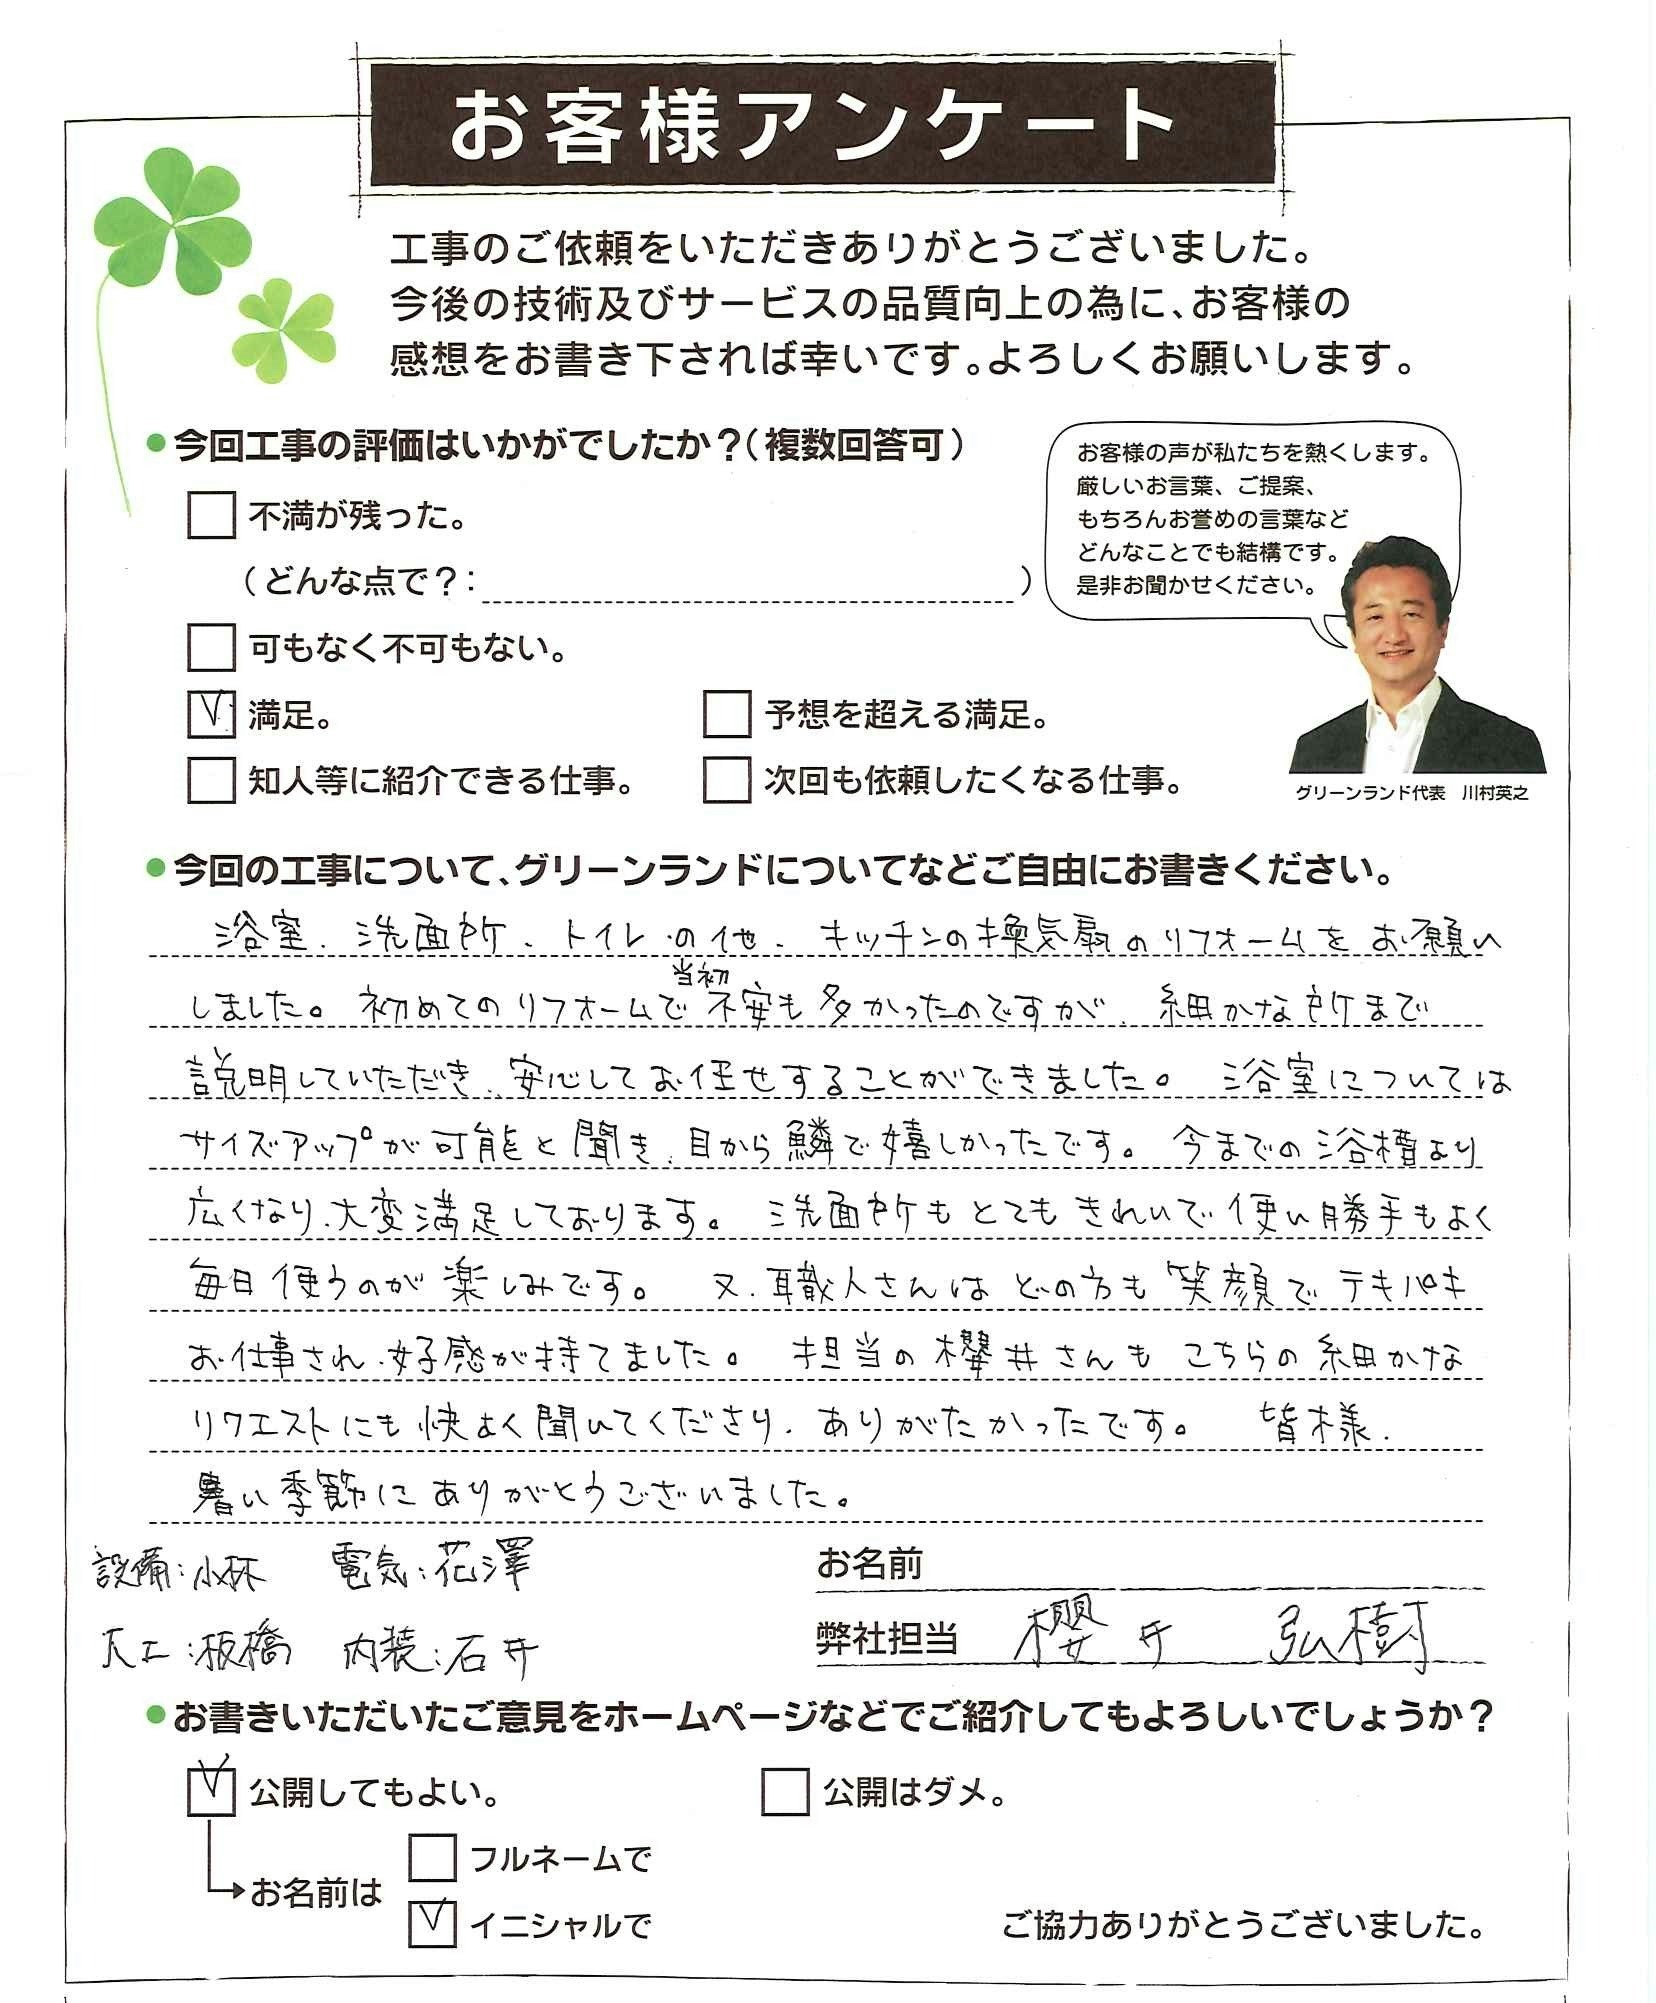 お客様アンケート
工事のご依頼をいただきありがとうございました。
今後の技術及びサービスの品質向上の為に、お客様の
感想をお書き下されば幸いです。よろしくお願いします。
●今回工事の評価はいかがでしたか？（複数回答可）
お客様の声が私たちを熱くします。
厳しいお言葉、ご提案、
もちろんお誉めの言葉など
どんなことでも結構です。
是非お聞かせください。
不満が残った。
（どんな点で？：　　）
可もなく不可もない。
満足。　予想を超える満足。
知人等に紹介できる仕事。　次回も依頼したくなる仕事。
グリーンランド代表　川村英之
●今回の工事について、グリーンランドについてなどご自由にお書きください。
浴室、洗面所、トイレの他、キッチンの換気扇のリフォームをお願い
しました。初めてのリフォームで当初不安も多かったのですが、細かな所まで
説明していただき、安心してお任せすることができました。浴室については
サイズアップが可能と聞き、目から鱗で嬉しかったです。今までの浴槽より
広くなり、大変満足しております。洗面所もとてもきれいで使い勝手もよく
毎日使うのが楽しみです。又、職人さんはどの方も笑顔でテキパキ
お仕事され、好感が持てました。担当の櫻井さんもこちらの細かな
リクエストにも快よく聞いてくださり、ありがたかったです。皆様、
暑い季節にありがとうございました。
設備：小林　電気：花澤
大工：板橋　内装：石井
お名前
弊社担当　櫻井　弘樹
●お書きいただいたご意見をホームページなどでご紹介してもよろしいでしょうか？
公開してもよい。　公開はダメ。
お名前は
フルネームで
イニシャルで
ご協力ありがとうございました。